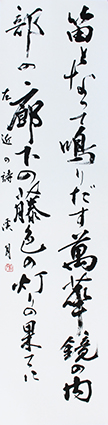 笛となって鳴りだす萬華鏡の内
部の廊下の藤色の灯りの果てに
左近の詩 溪月